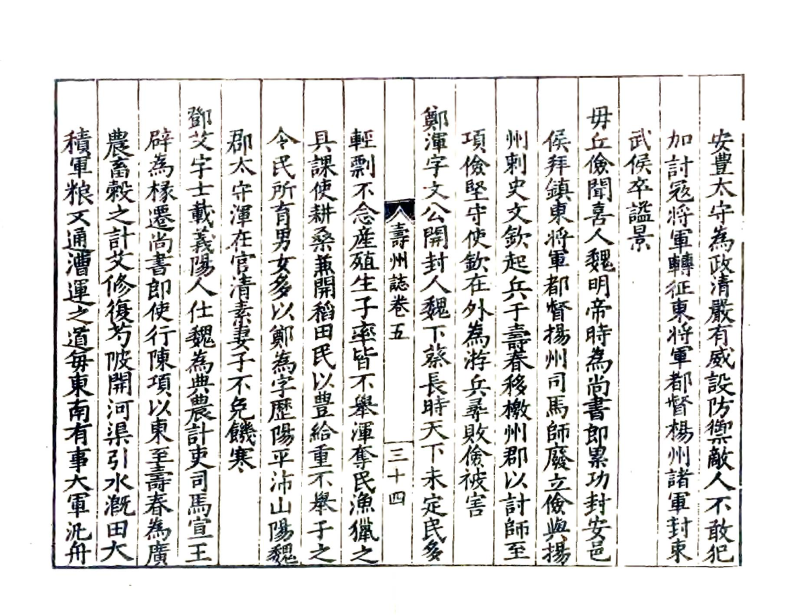 安豊太守為政清嚴有威設防禦敵人不敢犯
加討冦將軍轉征東將軍都督楊州諸軍封東
武侯卒謚景
毋丘儉聞喜人魏明帝時為尚書郎累功封安邑
侯拜鎮東將軍都督揚州司馬師廢立儉與揚
州刺史文欽起兵于壽春移檄州郡以討師至
項儉堅守使欽在外為游兵尋敗儉被害
鄭渾字文公開封人魏下蔡長時天下未定民多
壽州誌卷五
三十四
輕剽不念產殖生子率皆不舉渾奪民漁獵之
具課使耕桑兼開稻田民以豊給重不舉子之
令民所育男女多以鄭為字歷陽平沛山陽魏
郡太守渾在官清素妻子不免饑寒
鄧艾字士載義陽人仕魏為典農計吏司馬宣王
辟為椽遷尚書郎使行陳項以東至壽春為廣
農畜穀之計艾修復芍陂開河渠引水溉田大
積軍粮又通漕運之道每東南有事大軍汎舟